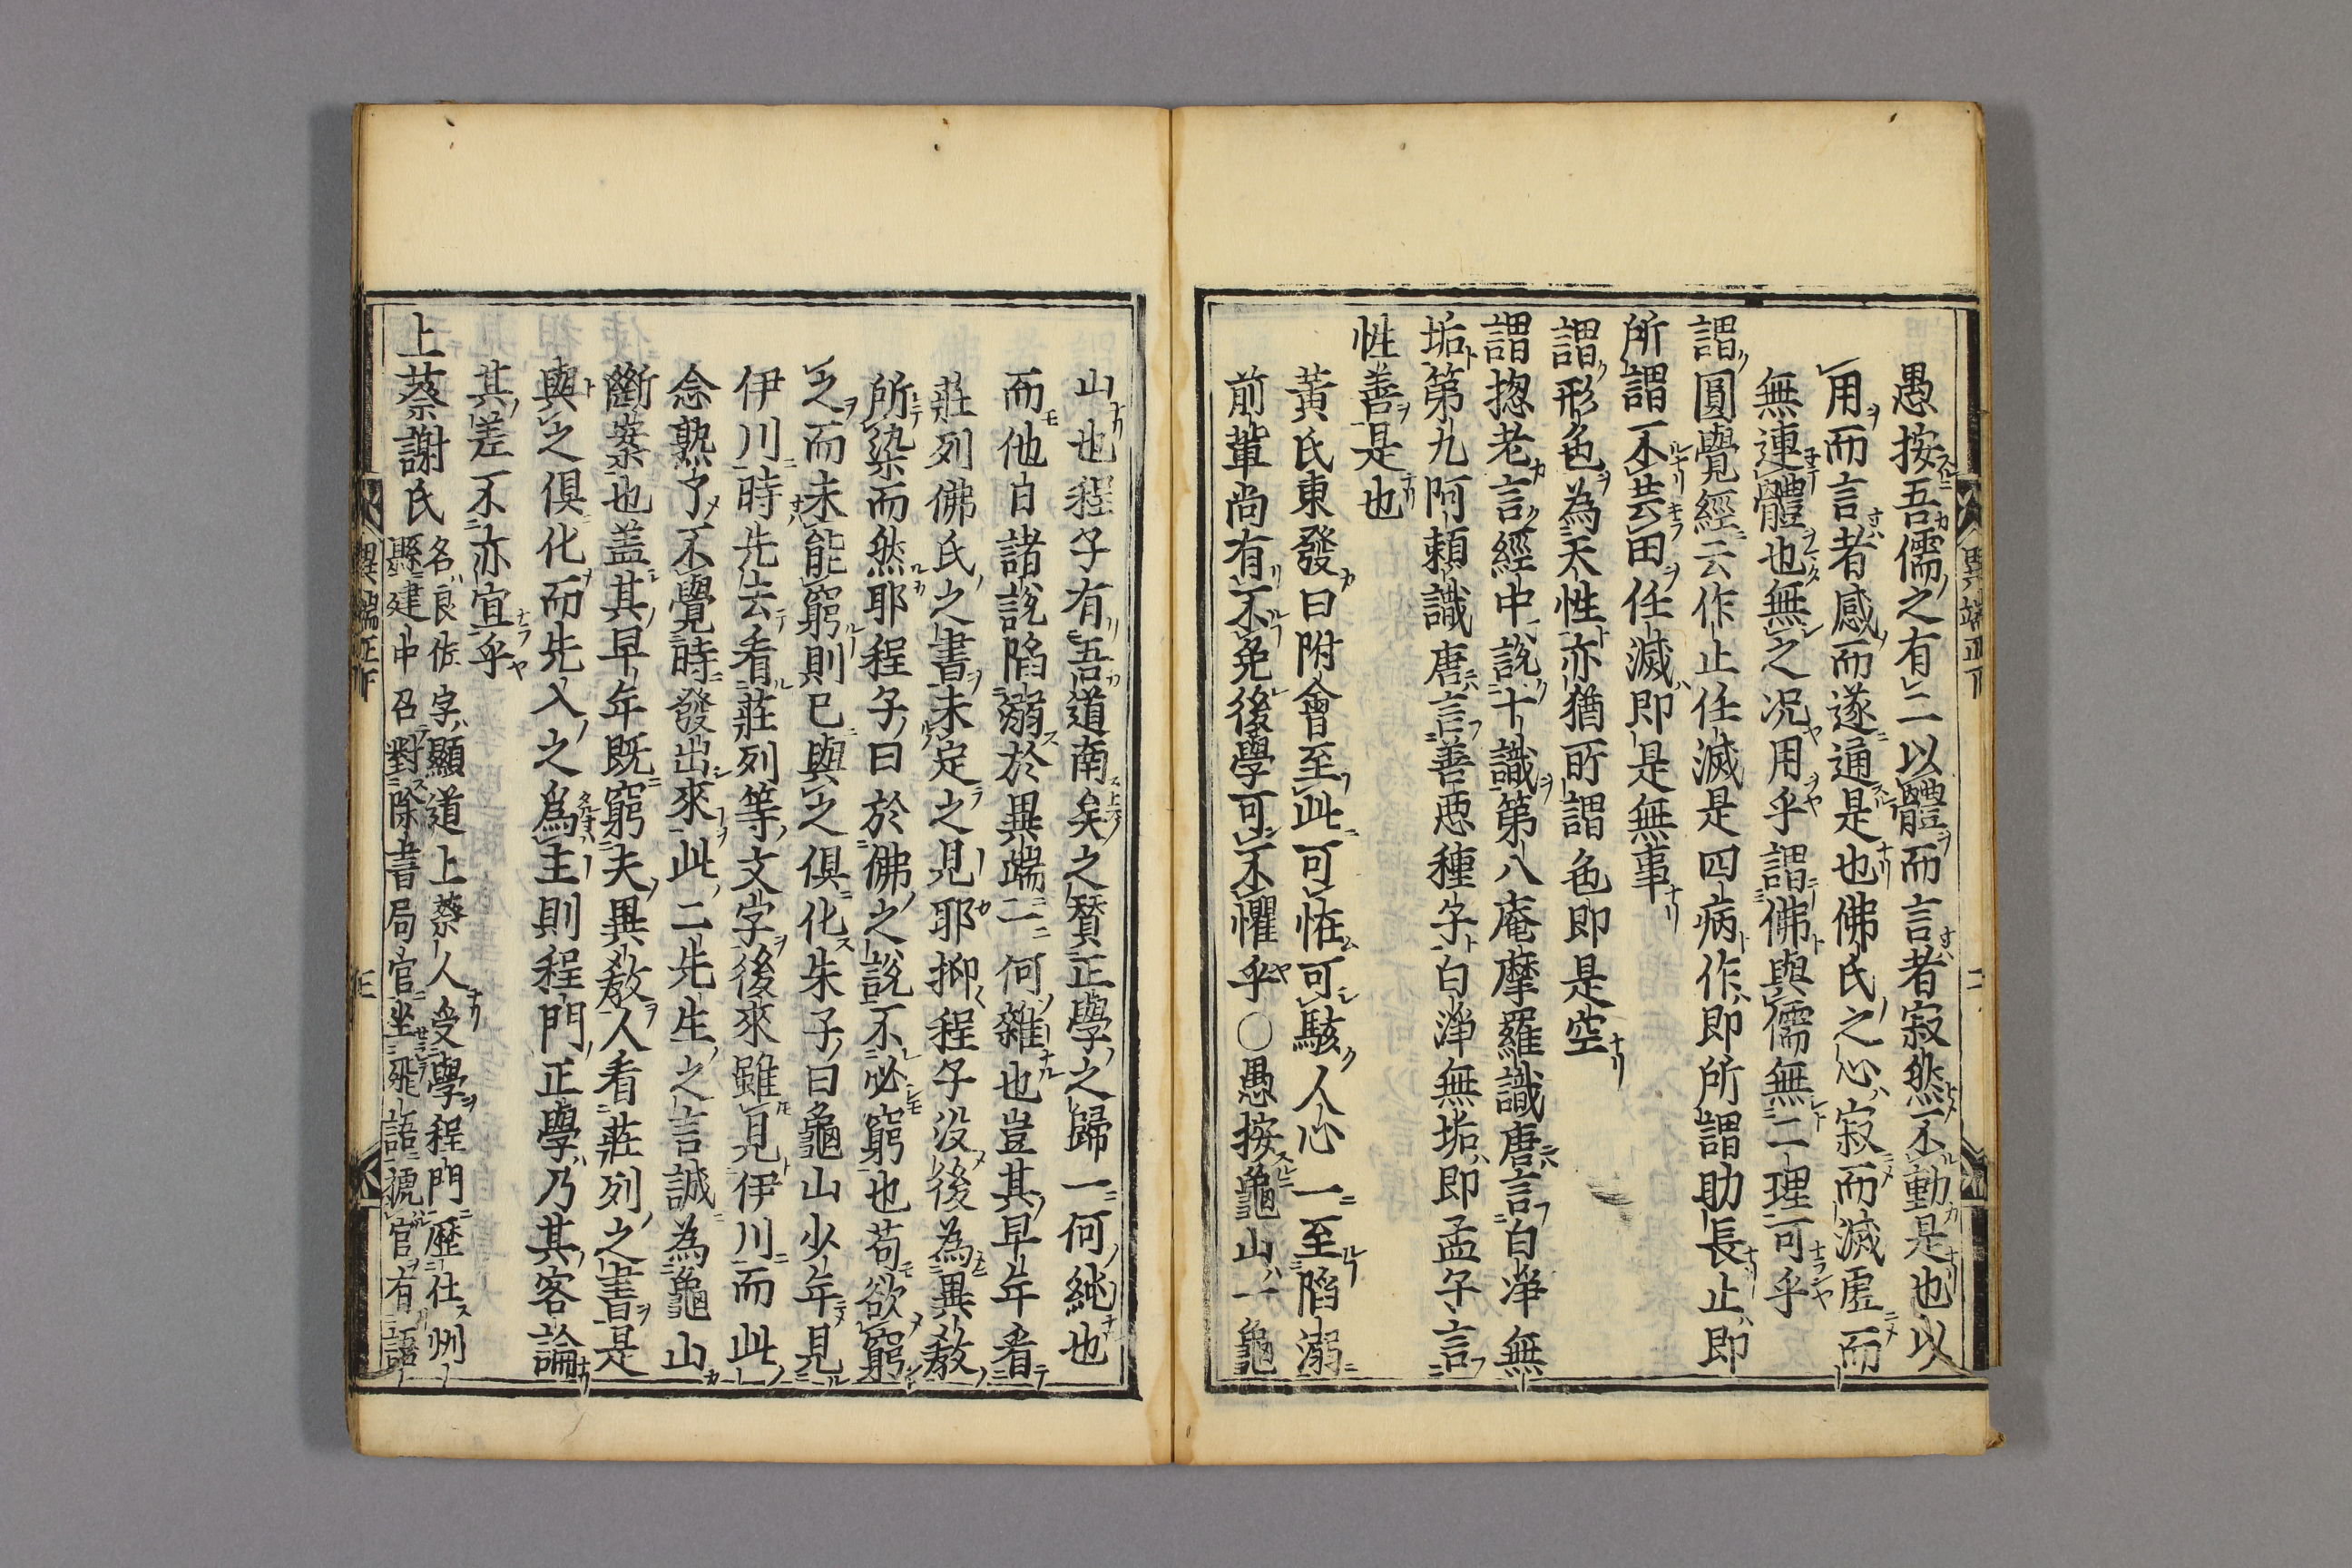 愚按吾儒之有二以體而言者寂然不動是也以
用而言者感而遂通是也佛氏之心寂而滅虚而
無連體也無之况用乎謂佛與儒無二理可乎
謂圓覺經云作止任滅是四病作即所謂助長止即
所謂不芸田任滅即是無事
謂形色為天性亦猶所謂色即是空
謂揔老言經中說十識第八庵摩羅識唐言白淨無
垢第九阿賴識唐言善惡種子白淨無垢即孟子言
性善是也
黃氏東發曰附會至此可恠可駭人心一至陷溺
前輩尚有不免後學可不懼乎○愚按龜山一龜
山也程子有吾道南矣之賛正學之歸一何純也
而他日諸說陷溺於異端二何雜也豈其早年看
莊列佛氏之書未定之見耶抑程子没後為異教
所染而然耶程子曰於佛之說不必窮也苟欲窮
之而未能窮則已與之俱化朱子曰龜山少年見
伊川時先去看莊列等文字後來雖見伊川而此
念熟了不覺時發出來此二先生之言誠為龜山
斷案也盖其早年既窮夫異教人看莊列之書是
與之俱化而先入之爲主則程門正學乃其客論
其差不亦宜乎
上蔡謝氏
名良佐字顯道上蔡人受學程門歷仕州
縣建中召對除書局官坐飛語褫官有語
異端正下